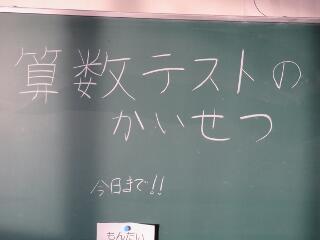 算数テストの
かいせつ
今日まで!!
もんだい